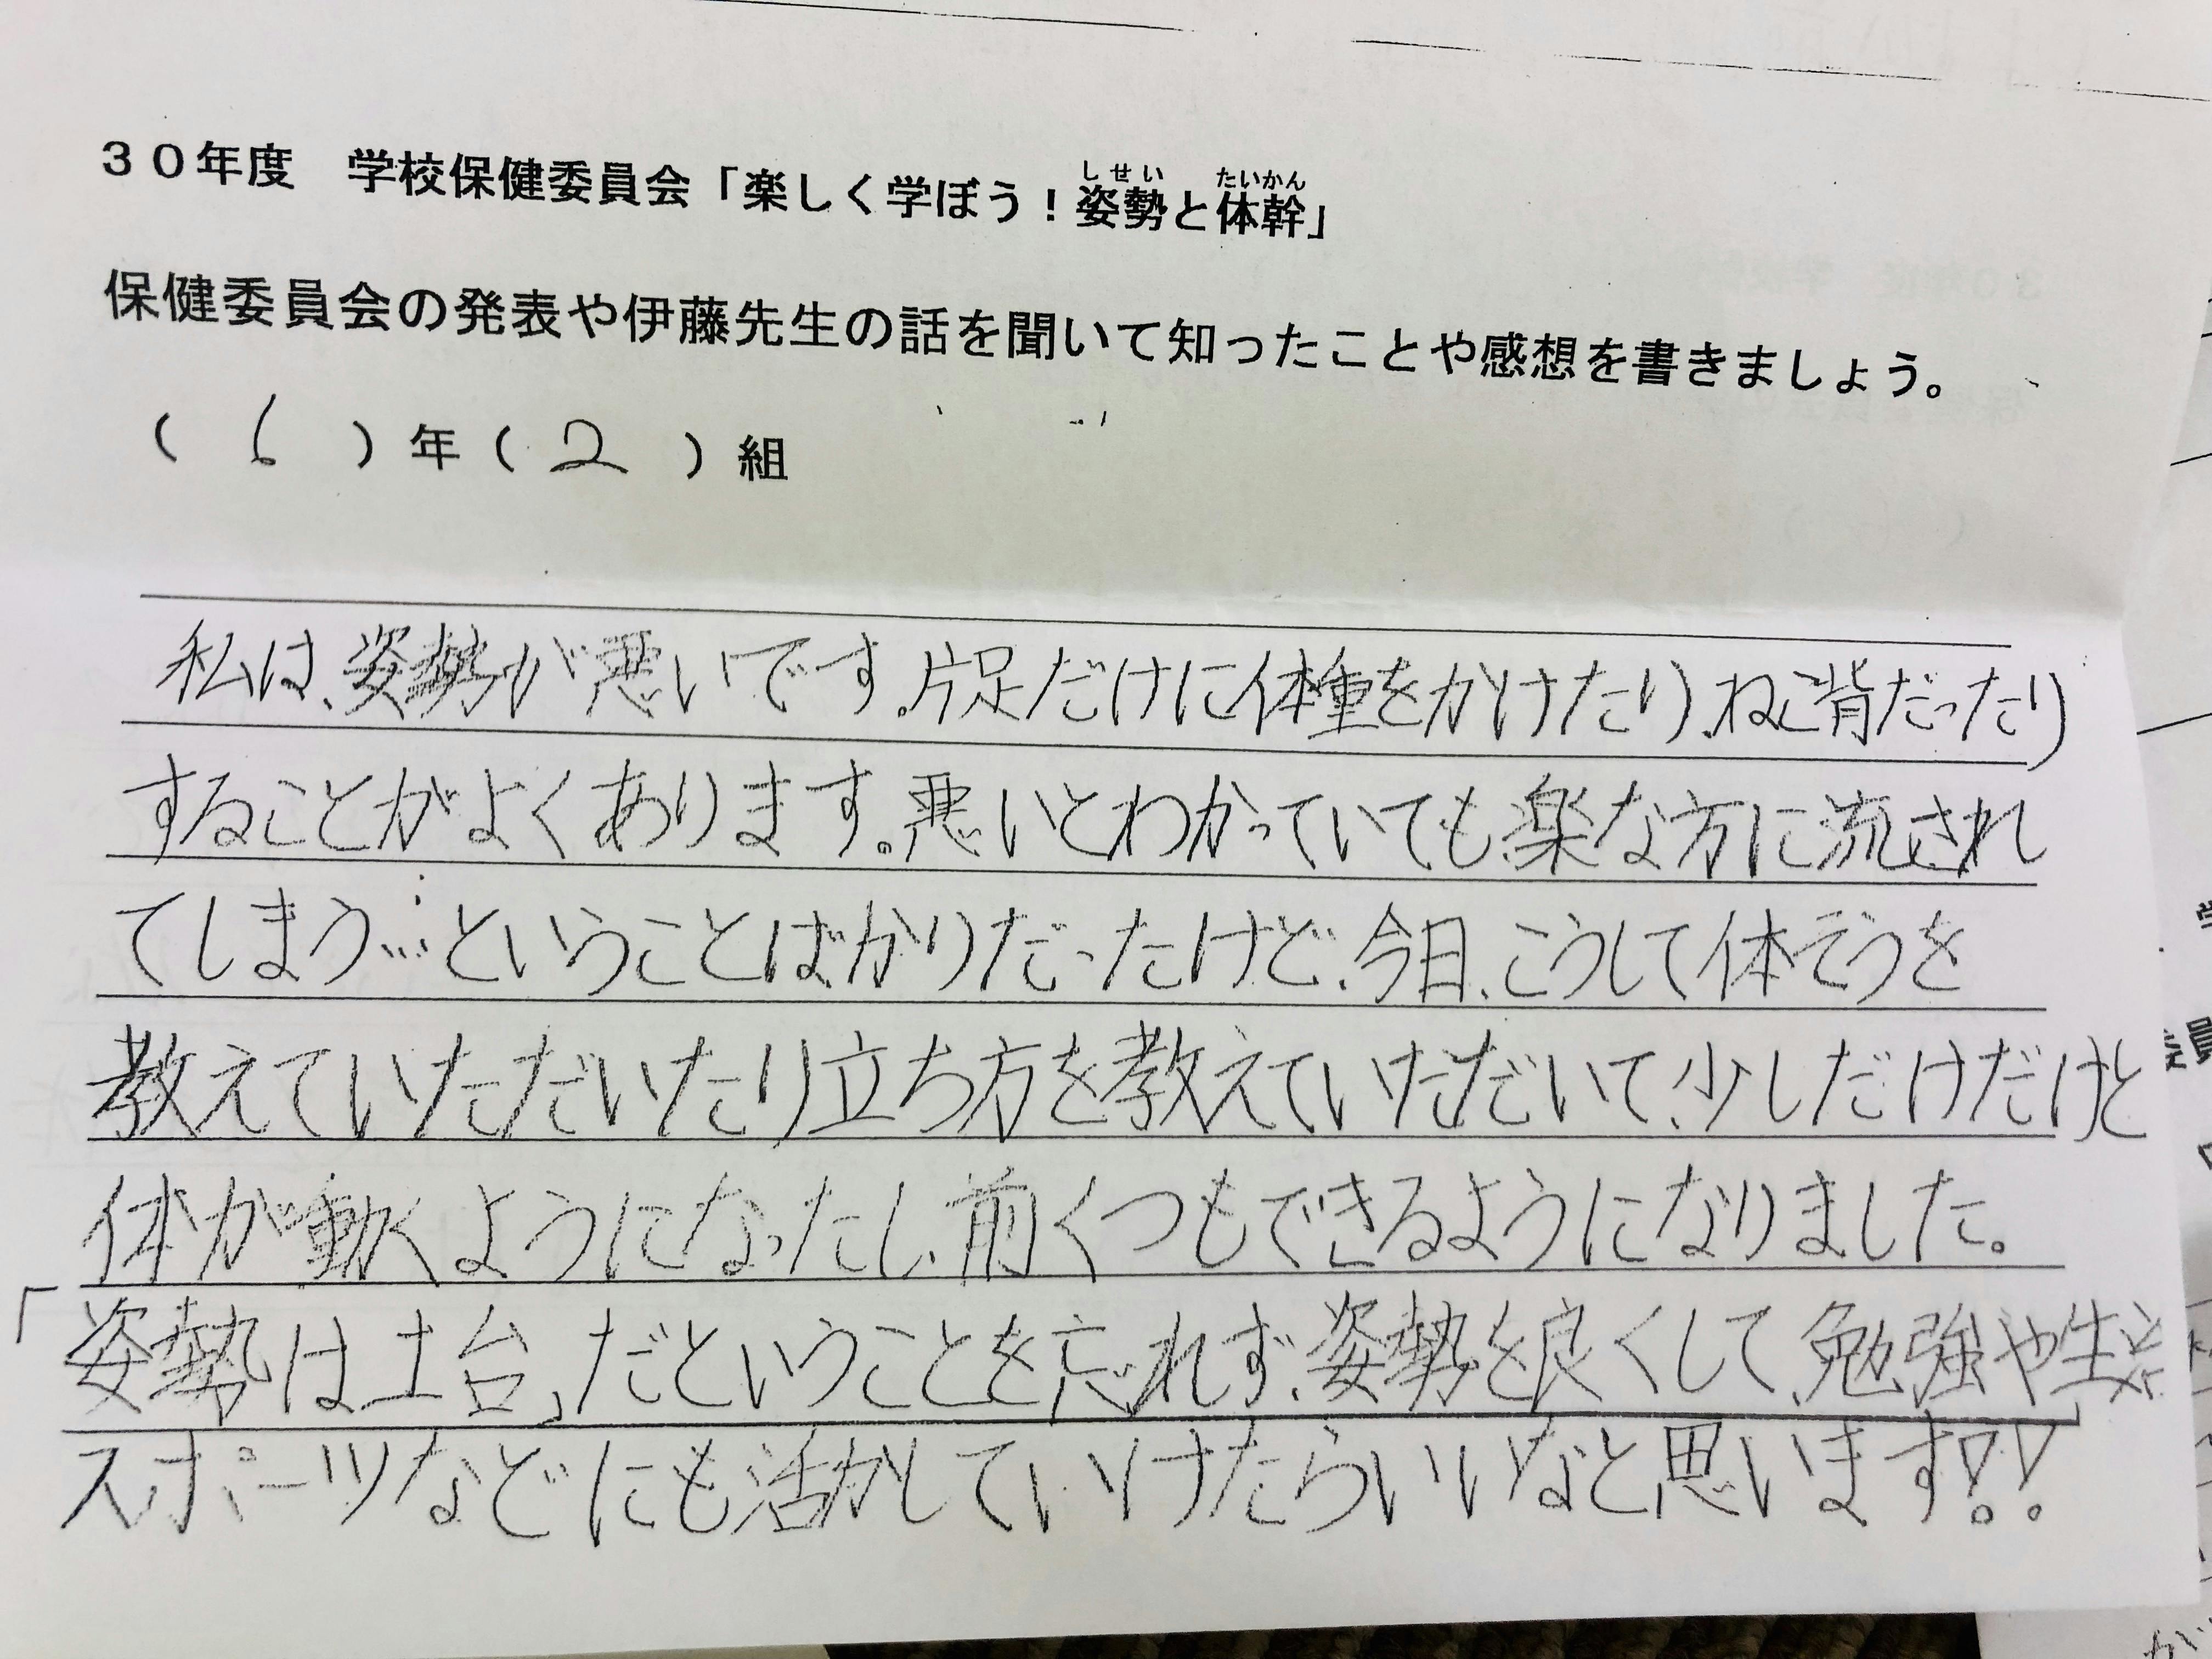 30年度　学校保健委員会「楽しく学ぼう！姿勢と体幹」
しせい　たいかん
保健委員会の発表や伊藤先生の話を聞いて知ったことや感想を書きましょう。
（ 6 ）年（ 2 ）組
私は、姿勢が悪いです。片足だけに体重をかけたり、ねこ背だったり
することがよくあります。悪いとわかっていても楽な方に流され
てしまう…ということばかりだったけど、今日、こうして体そうを
教えていただいたり立ち方を教えていただいて、少しだけだけど
体が動くようになったし、前くつもできるようになりました。
「姿勢は土台」だということを忘れず、姿勢を良くして、勉強や生活
スポーツなどにも活かしていけたらいいなと思います！！